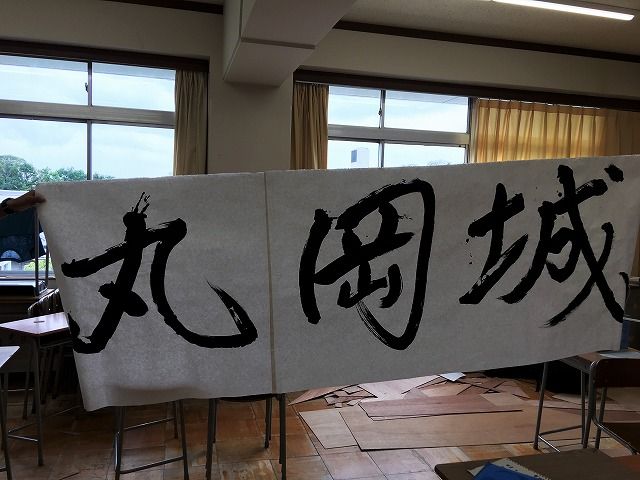 丸岡城